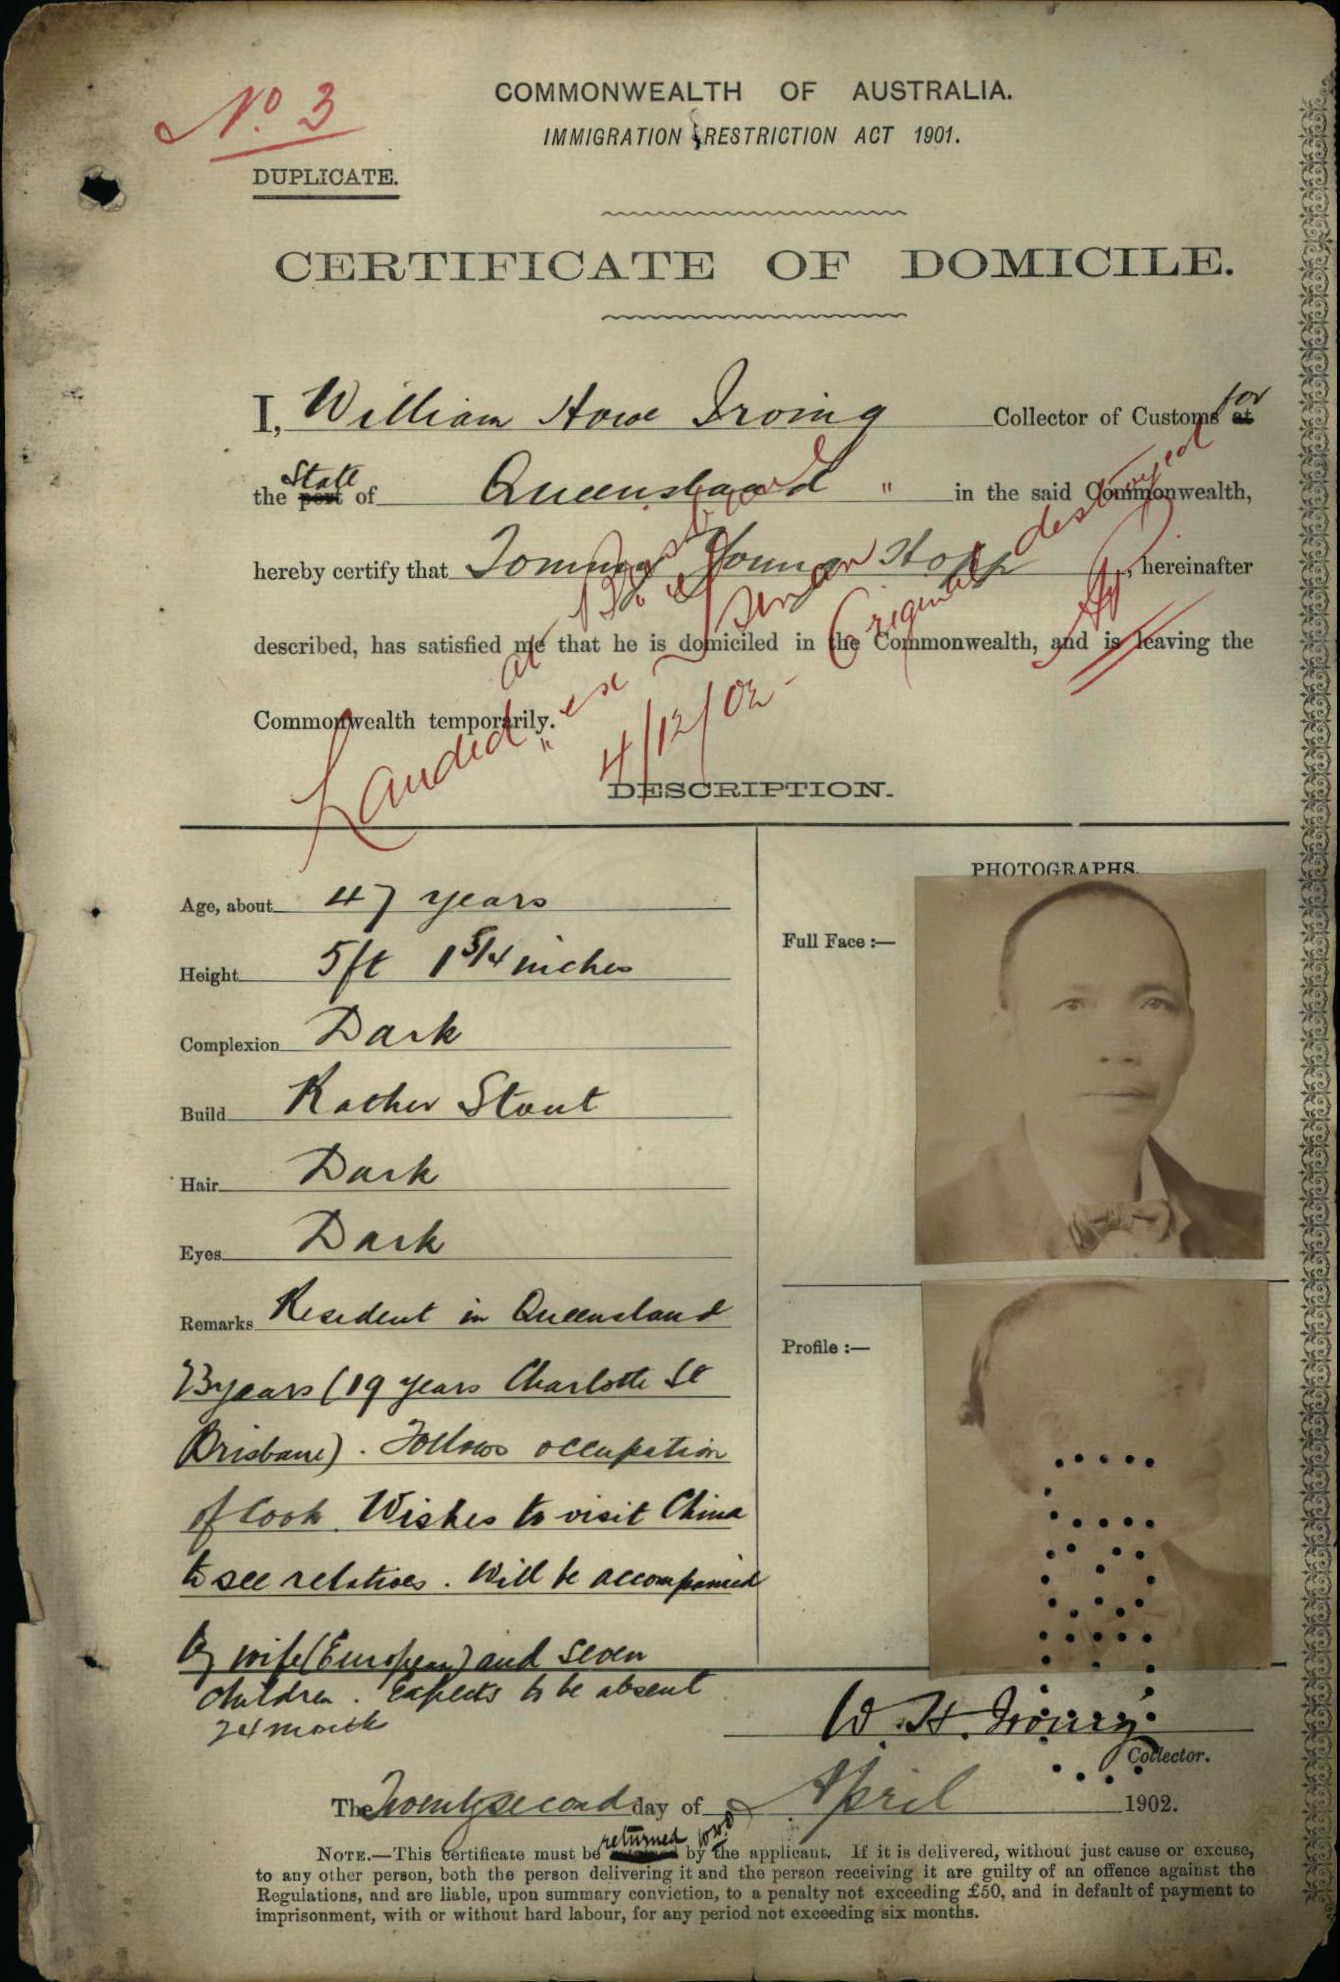 No. 3
COMMONWEALTH OF AUSTRALIA.
IMMIGRATION RESTRICTION ACT 1901.
DUPLICATE.
CERTIFICATE OF DOMICILE.
I, William Howe Irving Collector of Customs at for
the port State of Queensland " in the said Commonwealth,
hereby certify that Tommy Young Hopp, hereinafter
described, has satisfied me that he is domiciled in the Commonwealth, and is leaving the
Commonwealth temporarily.
Landed at Brisbane
ex
4/12/02 - Original destroyed
DESCRIPTION.
Age, about 47 years
Height 5ft 1 3/4 inches
Complexion Dark
Build Rather Stout
Hair Dark
Eyes Dark
Remarks Resident in Queensland
23 years (19 years Charlotte St
Brisbane). Follows occupation
of Cook. Wishes to visit China
to see relatives. Will be accompanied
by wife (European) and seven
children. Expects to be absent
24 months
PHOTOGRAPHS.
Full Face :—
Profile :—
W. H. Irving
Collector.
The Twenty second day of April 1902.
NOTE.—This certificate must be returned by the applicant. If it is delivered, without just cause or excuse,
to any other person, both the person delivering it and the person receiving it are guilty of an offence against the
Regulations, and are liable, upon summary conviction, to a penalty not exceeding £50, and in default of payment to
imprisonment, with or without hard labour, for any period not exceeding six months.